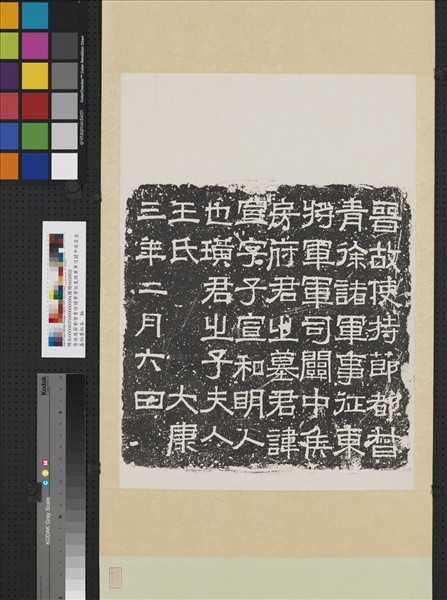 晉故使持節都督
青徐諸軍事征東
將軍軍司關中侯
房府君之墓君諱
宣字子宣和明人
也璜君之子夫人
王氏 大康
三年二月六日
gretagmacbeth
ColorChecker Color Rendition Chart
Kodak
KODAK Gray Scale
C
M